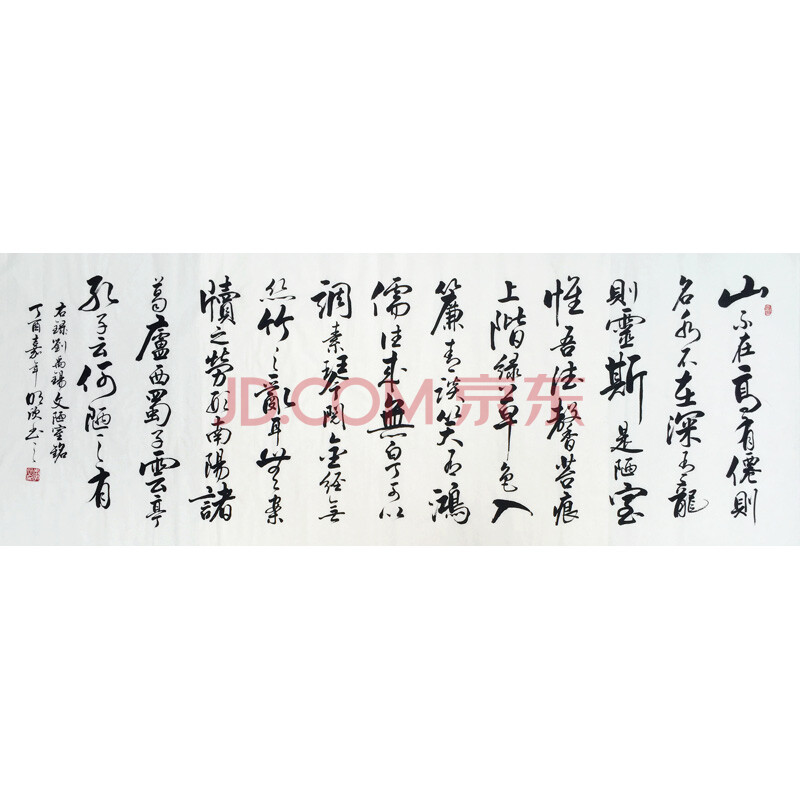 山不在高有僊則
名水不在深有龍
則靈斯是陋室
惟吾德馨苔痕
上階緑草色入
簾青談笑有鴻
儒往来無白丁可以
調素琴閱金經無
絲竹之亂耳無案
牘之勞形南陽諸
葛廬西蜀子雲亭
孔子云何陋之有
右録劉禹錫文陋室銘
丁酉年书之
JD.COM 京东